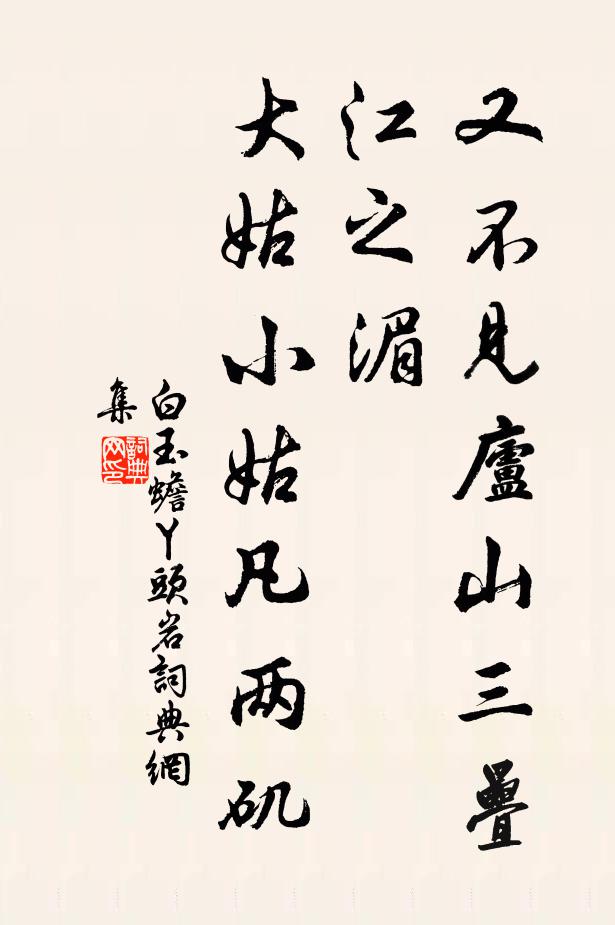 又不見廬山三疊
江之湄
大姑小姑凡两矶
白玉蟾丫頭岩詞典網
集
詞典
网印